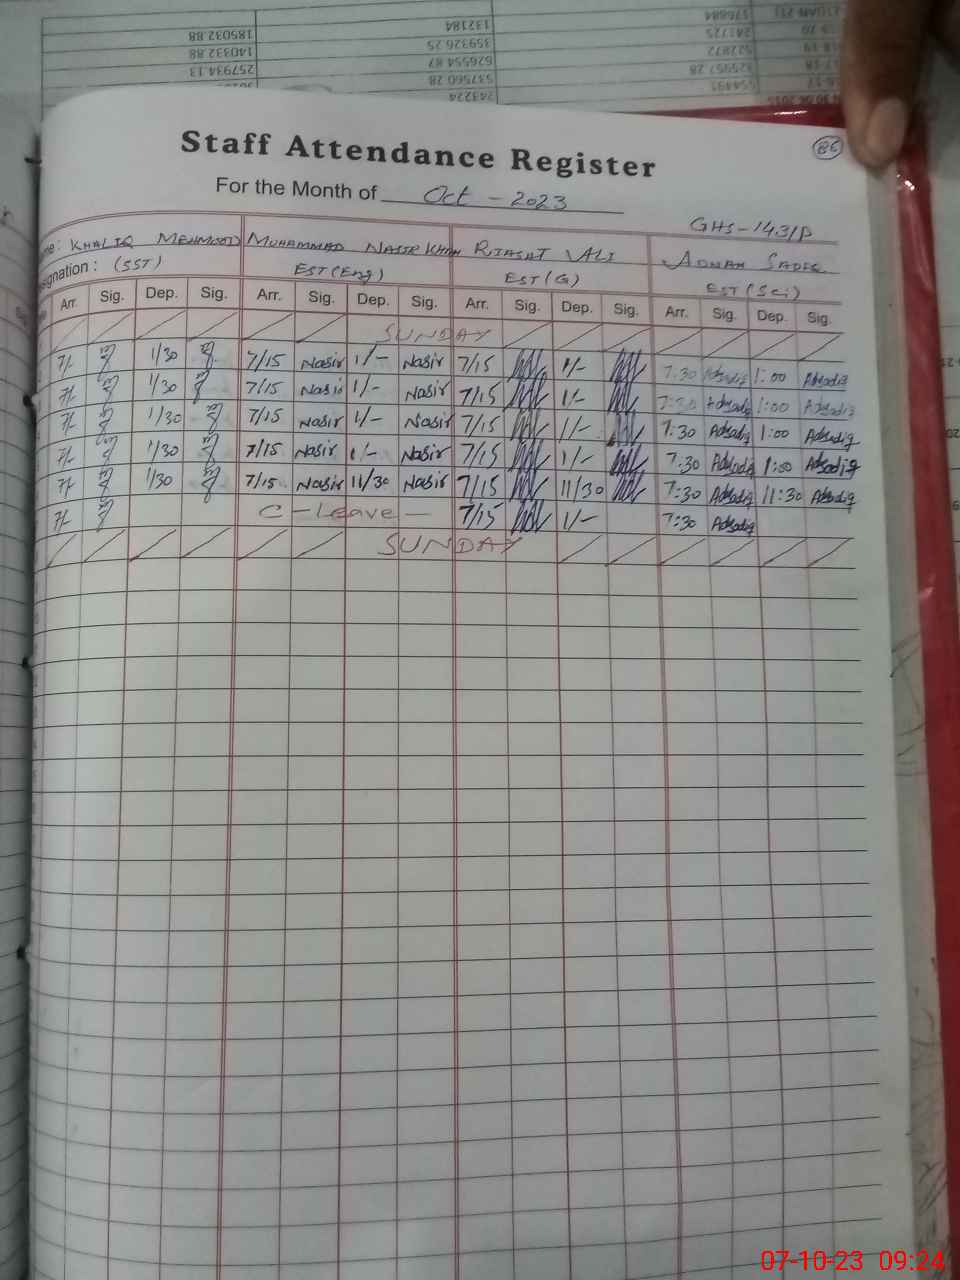 132184
185032.88
241725
359326.25
140332.88
522872
676554.87
257934.13
525957.28
537560.28
554491
243224
86
Staff Attendance Register
For the Month of Oct - 2023
GHS-143/P
KHALIQ MEHMOOD MUHAMMAD NASIR KHAN RIASAT ALI ADNAN SADIQ
signation: (SST) EST (Eng) EST (G) EST (Sci)
Arr. Sig. Dep. Sig. Arr. Sig. Dep. Sig. Arr. Sig. Dep. Sig. Arr. Sig. Dep. Sig.
SUNDAY
7/- 1/30 7/15 Nasir 1/- Nasir 7/15 1/- 7:30 Adsadiq 1:00 Adsadiq
7/- 1/30 7/15 Nasir 1/- Nasir 7/15 1/- 7:30 Adsadiq 1:00 Adsadiq
7/- 1/30 7/15 Nasir 1/- Nasir 7/15 1/- 7:30 Adsadiq 1:00 Adsadiq
7/- 1/30 7/15 Nasir 1/- Nasir 7/15 1/- 7:30 Adsadiq 1:00 Adsadiq
7/- 1/30 7/15 Nasir 11/30 Nasir 7/15 11/30 7:30 Adsadiq 11:30 Adsadiq
7/- C-Leave- 7/15 1/- 7:30 Adsadiq
SUNDAY
07-10-23 09:24